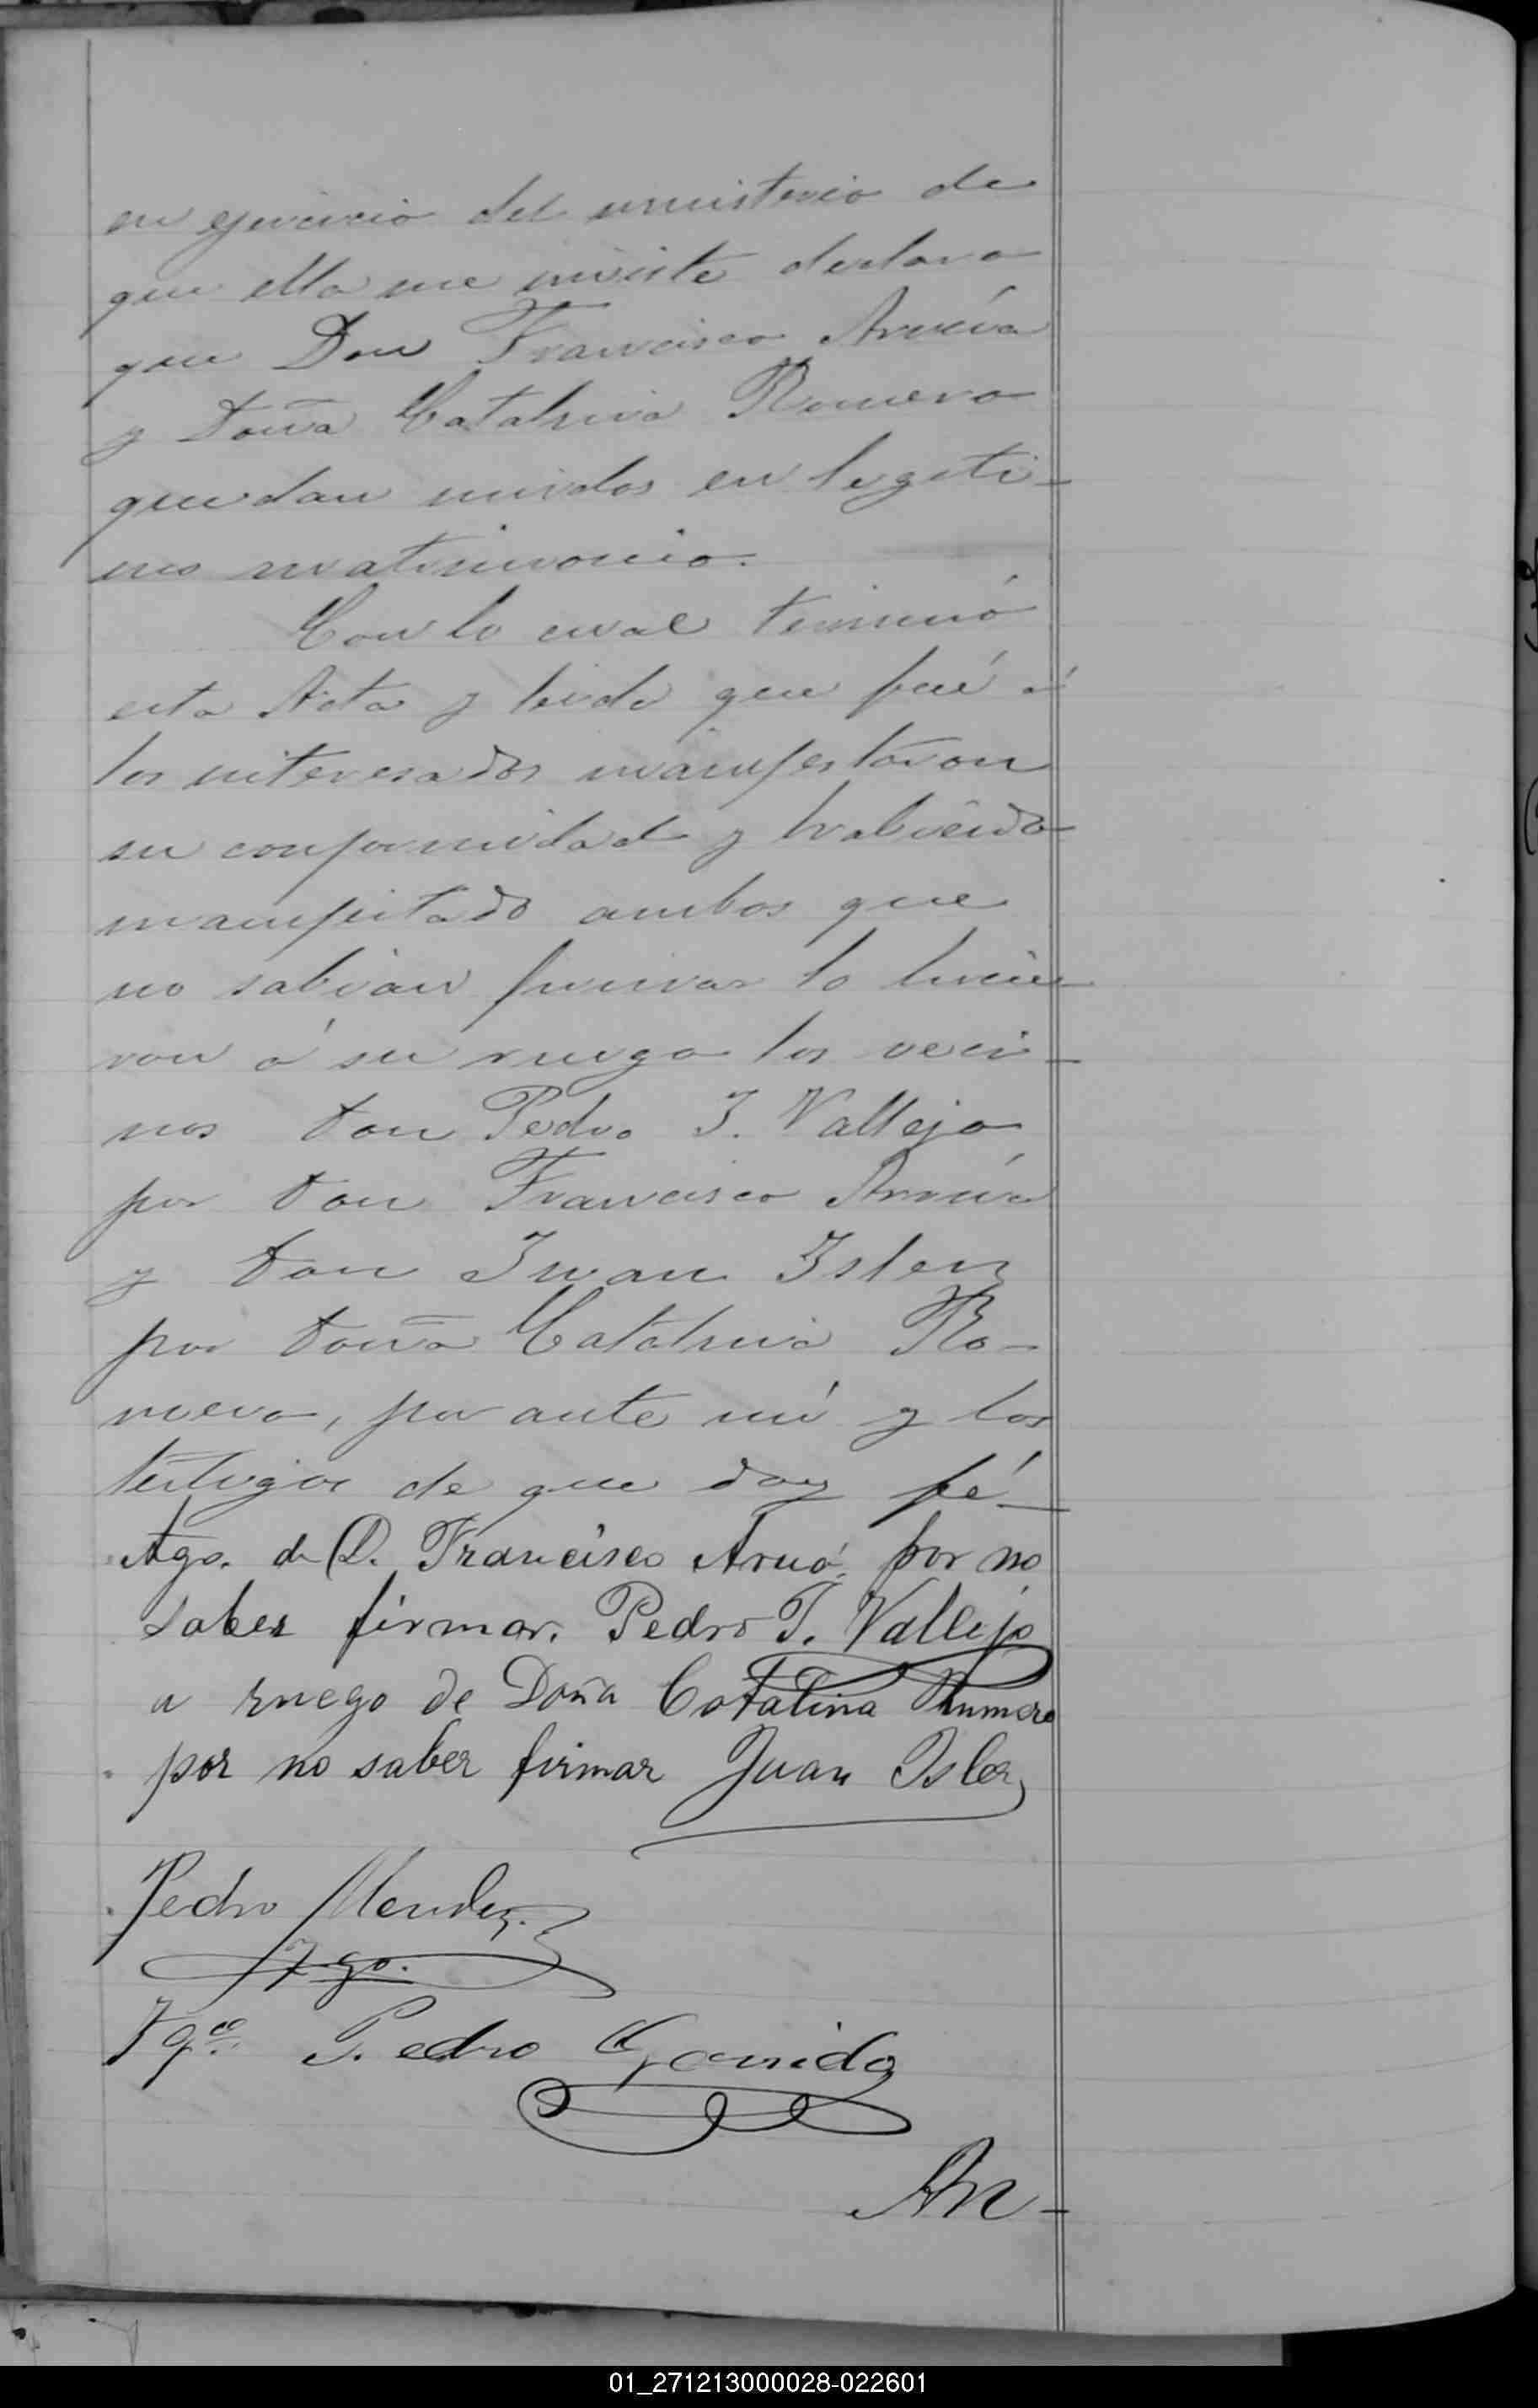 en ejercicio del ministerio de
que ella me inviste declaro
que Don Francisco
y Doña Catalina Romero
quedan unidos en legiti-
mo matrimonio.
Con lo cual terminó
esta Acta y leida que fué á
los interesados manifestaron
su conformidad y habiendo
manifestado ambos que
no sabian firmar lo hicie-
ron á su ruego los veci-
nos Don Pedro J. Vallejo
por Don Francisco
y Don Juan Isler
por Doña Catalina Ro-
mero, por ante mi y los
testigos de que doy fé
Ago. de D. Francisco por no
saber firmar. Pedro J. Vallejo
a ruego de Doña Catalina Rumero
por no saber firmar Juan Isler
Pedro Mendez
Tgo.
Tgo. Pedro Garrido
An-
01_271213000028-022601